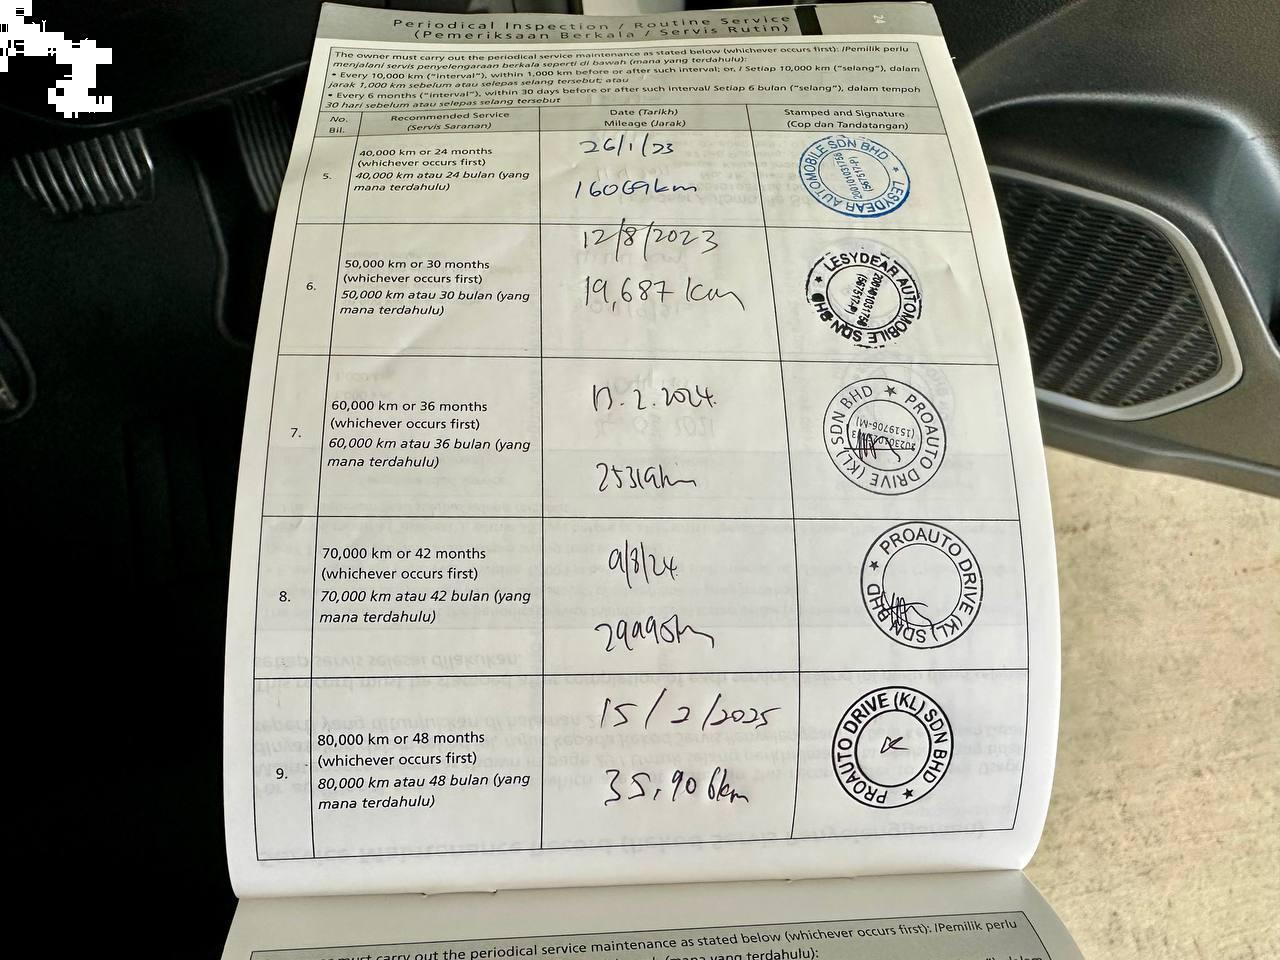 Periodical Inspection / Routine Service
(Pemeriksaan Berkala / Servis Rutin)
24
The owner must carry out the periodical service maintenance as stated below (whichever occurs first): /Pemilik perlu
menjalani servis penyelengaraan berkala seperti di bawah (mana yang terdahulu):
• Every 10,000 km ("interval"), within 1,000 km before or after such interval; or, / Setiap 10,000 km ("selang"), dalam
jarak 1,000 km sebelum atau selepas selang tersebut; atau
• Every 6 months ("interval"), within 30 days before or after such interval/ Setiap 6 bulan ("selang"), dalam tempoh
30 hari sebelum atau selepas selang tersebut
No.
Bil.
Recommended Service
(Servis Saranan)
Date (Tarikh)
Mileage (Jarak)
Stamped and Signature
(Cop dan Tandatangan)
5.
40,000 km or 24 months
(whichever occurs first)
40,000 km atau 24 bulan (yang
mana terdahulu)
26/1/23
16069km
LESYDEAR AUTOMOBILE SDN BHD
200101031759
(567517-P)
6.
50,000 km or 30 months
(whichever occurs first)
50,000 km atau 30 bulan (yang
mana terdahulu)
12/8/2023
19,687 km
LESYDEAR AUTOMOBILE SDN BHD
200101031759
(567517-P)
7.
60,000 km or 36 months
(whichever occurs first)
60,000 km atau 36 bulan (yang
mana terdahulu)
13.2.2024
25319km
PROAUTO DRIVE (KL) SDN BHD
(1519706-M)
8.
70,000 km or 42 months
(whichever occurs first)
70,000 km atau 42 bulan (yang
mana terdahulu)
9/8/24
29995km
PROAUTO DRIVE (KL) SDN BHD
9.
80,000 km or 48 months
(whichever occurs first)
80,000 km atau 48 bulan (yang
mana terdahulu)
15/2/2025
35,906km
PROAUTO DRIVE (KL) SDN BHD
must carry out the periodical service maintenance as stated below (whichever occurs first): /Pemilik perlu
(mana yang terdahulu):